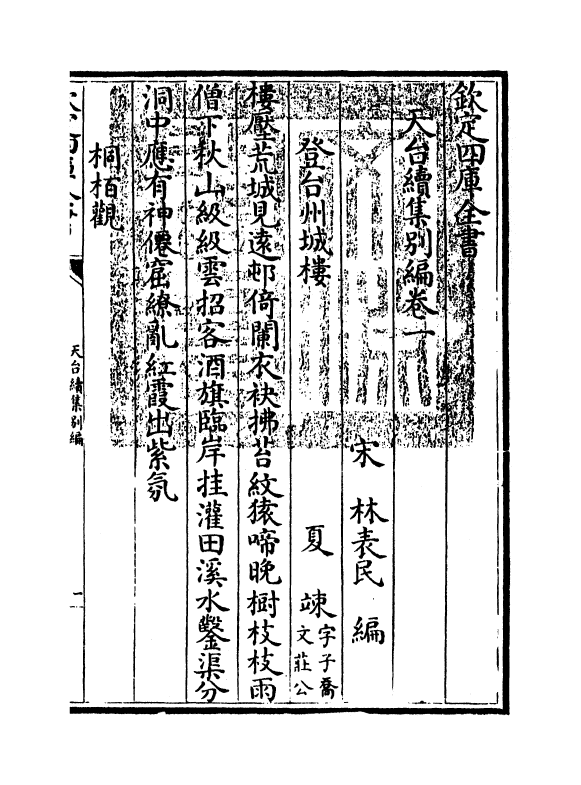 欽定四庫全書
天台續集別編卷一
宋 林表民 編
登台州城樓 夏竦 字子喬 文莊公
樓壓荒城見遠邨倚闌衣袂拂苔紋猿啼晚樹枝枝雨
僧下秋山級級雲招客酒旗臨岸挂灌田溪水鑿渠分
洞中應有神僊窟繚亂紅霞出紫氛
桐栢觀
天台續集別編
一